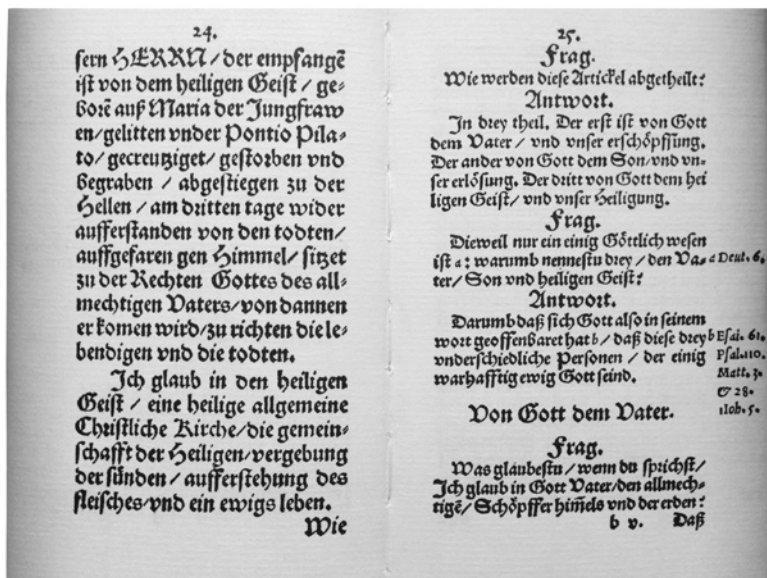 24.
sern HERRN / der empfangē
ist von dem heiligen Geist / ge⸗
borē auß Maria der Jungfraw
en/gelitten vnder Pontio Pila⸗
to/gecreutziget/gestorben vnd
begraben / abgestiegen zu der
Hellen / am dritten tage wider
aufferstanden von den todten/
auffgefaren gen Himmel/sitzet
zu der Rechten Gottes des all⸗
mechtigen Vaters/von dannen
er komen wird/zu richten die le⸗
bendigen vnd die todten.
Ich glaub in den heiligen
Geist / eine heilige allgemeine
Christliche Kirche/die gemein⸗
schafft der Heiligen/vergebung
der sünden / aufferstehung des
fleisches/vnd ein ewigs leben.
Wie
25.
Frag.
Wie werden diese Artickel abgetheilt?
Antwort.
In drey theil. Der erst ist von Gott
dem Vater / vnd vnser erschöpffung.
Der ander von Gott dem Son/vnd vn⸗
ser erlösung. Der dritt von Gott dem hei
ligen Geist/ vnd vnser Heiligung.
Frag.
Dieweil nur ein einig Göttlich wesen
ist a: warumb nennestu drey / den Va⸗ a Deut. 6.
ter/ Son vnd heiligen Geist?
Antwort.
Darumb daß sich Gott also in seinem
wort geoffenbaret hat b/ daß diese drey b Esai. 61.
vnderschiedliche Personen / der einig Psal.110.
warhafftig ewig Gott seind. Matt. 3.
& 28.
Von Gott dem Vater. 1Ioh. 5.
Frag.
Was glaubestu / wenn du sprichst/
Ich glaub in Gott Vater/den allmech⸗
tigē/ Schöpffer him̄els vnd der erden?
b v. Daß